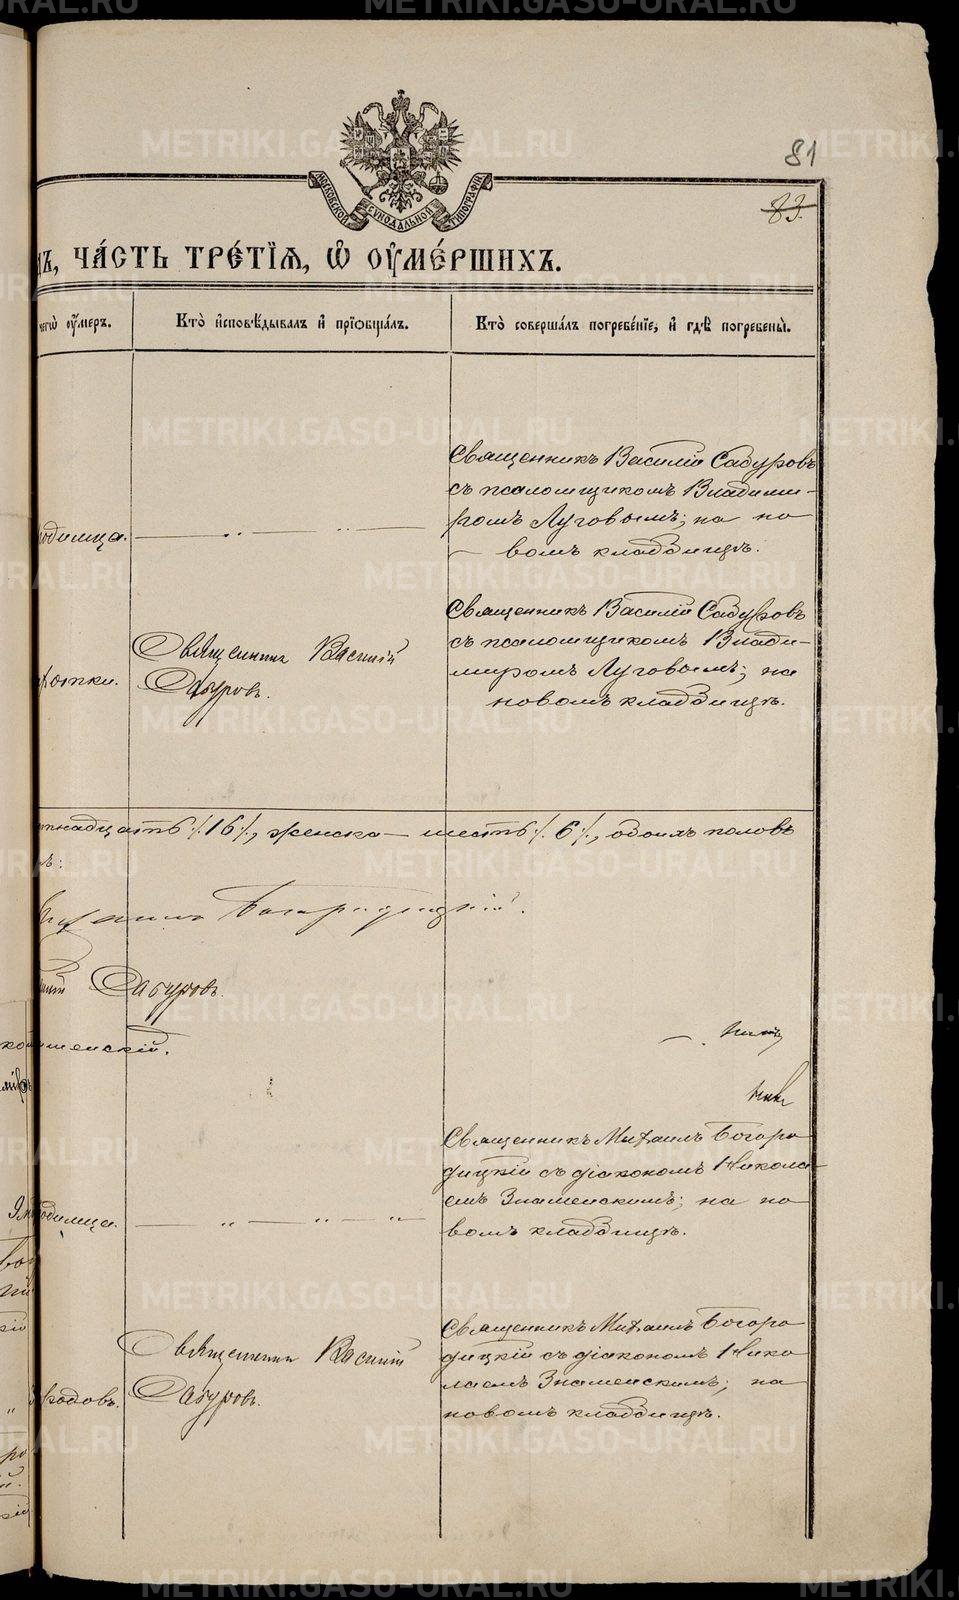 81
83.
МОСКОВСКОЙ СѴНОДАЛЬНОЙ ТИПОГРАФІИ
ЧА́СТЬ ТРЕ́ТІѦ, Ѡ҆ ОУ҆МЕ́РШИХЪ.
чегѡ̀ оу҆́меръ.
Кто̀ и҆сповѣ́дывалъ и҆ прїѡбща́лъ.
Кто̀ соверша́лъ погребе́нїе, и҆ гдѣ̀ погребены̀.
Священникъ Василій Сабуровъ
съ псаломщикомъ Владими-
ромъ Луговымъ; на но
вомъ кладбищѣ.
родимца.
Священникъ Василій
Сабуровъ.
Священникъ Василій Сабуровъ
съ псаломщикомъ Влади-
миромъ Луговымъ; на
новомъ кладбищѣ.
надцать /.16/., женска — шесть /.6/., обоихъ половъ
Богородицкій.
Сабуровъ.
Знаменскій.
родимца.
Священникъ Михаилъ Богоро
дицкій съ діакономъ Никола
емъ Знаменскимъ; на но
вомъ кладбищѣ.
родовъ.
Священникъ Василій
Сабуровъ.
Священникъ Михаилъ Богоро
дицкій съ діакономъ Нико
лаемъ Знаменскимъ; на
новомъ кладбищѣ.
METRIKI.GASO-URAL.RU